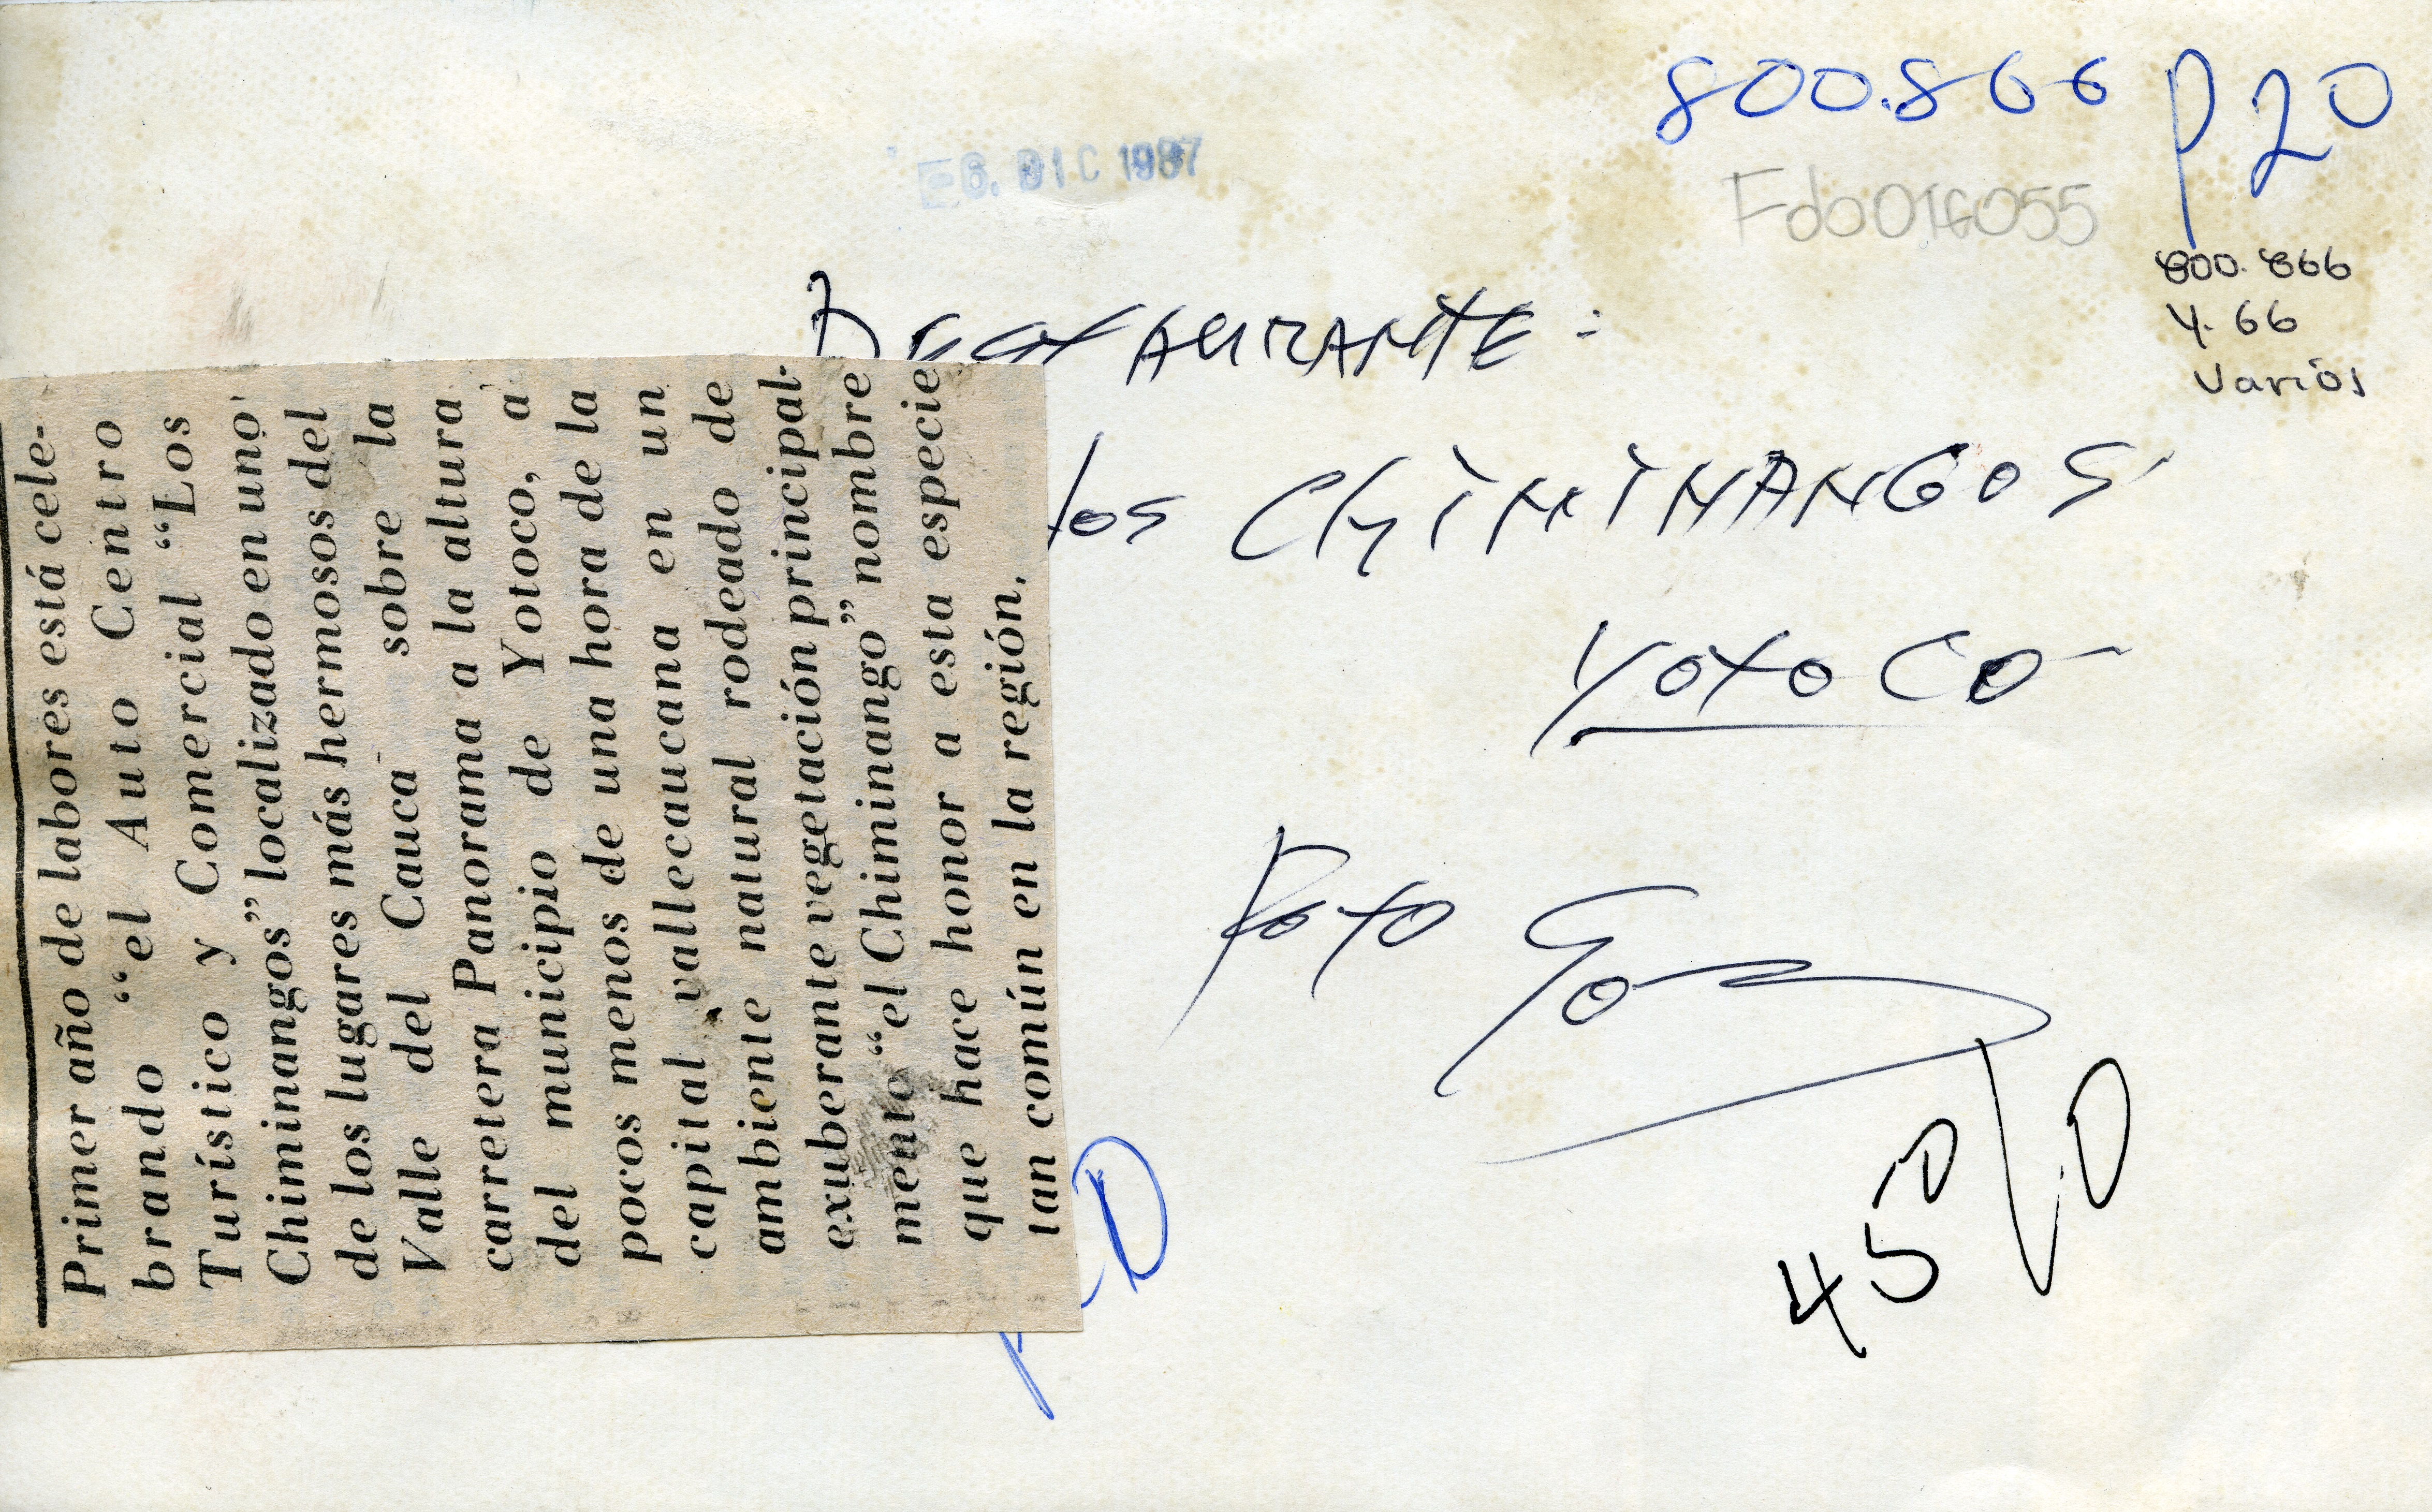 800.866 p20
6. DIC 1987
Fdo016055
800.866
4.66
Varios
Restaurante:
los Chiminangos
Yotoco
Foto
Primer año de labores está cele-
brando "el Auto Centro
Turístico y Comercial "Los
Chiminangos" localizado en uno
de los lugares más hermosos del
Valle del Cauca sobre la
carretera Panorama a la altura
del municipio de Yotoco, a
pocos menos de una hora de la
capital vallecaucana en un
ambiente natural rodeado de
exuberante vegetación principal-
mente "el Chiminango" nombre
que hace honor a esta especie
tan común en la región.